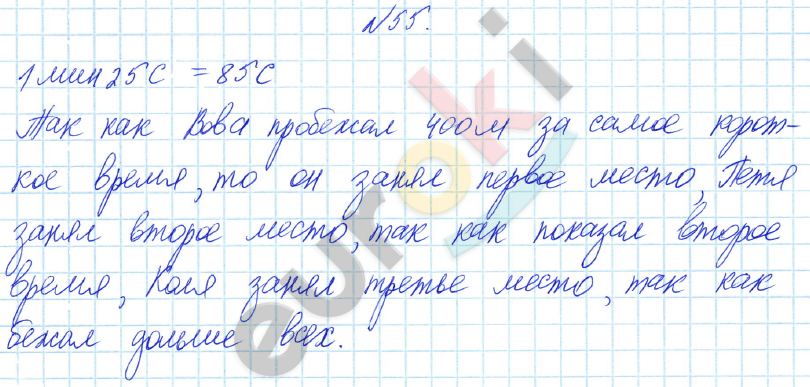 №55.
1 мин 25 с = 85 с
Так как Вова пробежал 400 м за самое корот-
кое время, то он занял первое место, Петя
занял второе место, так как показал второе
время, Коля занял третье место, так как
бежал дольше всех.
euroki